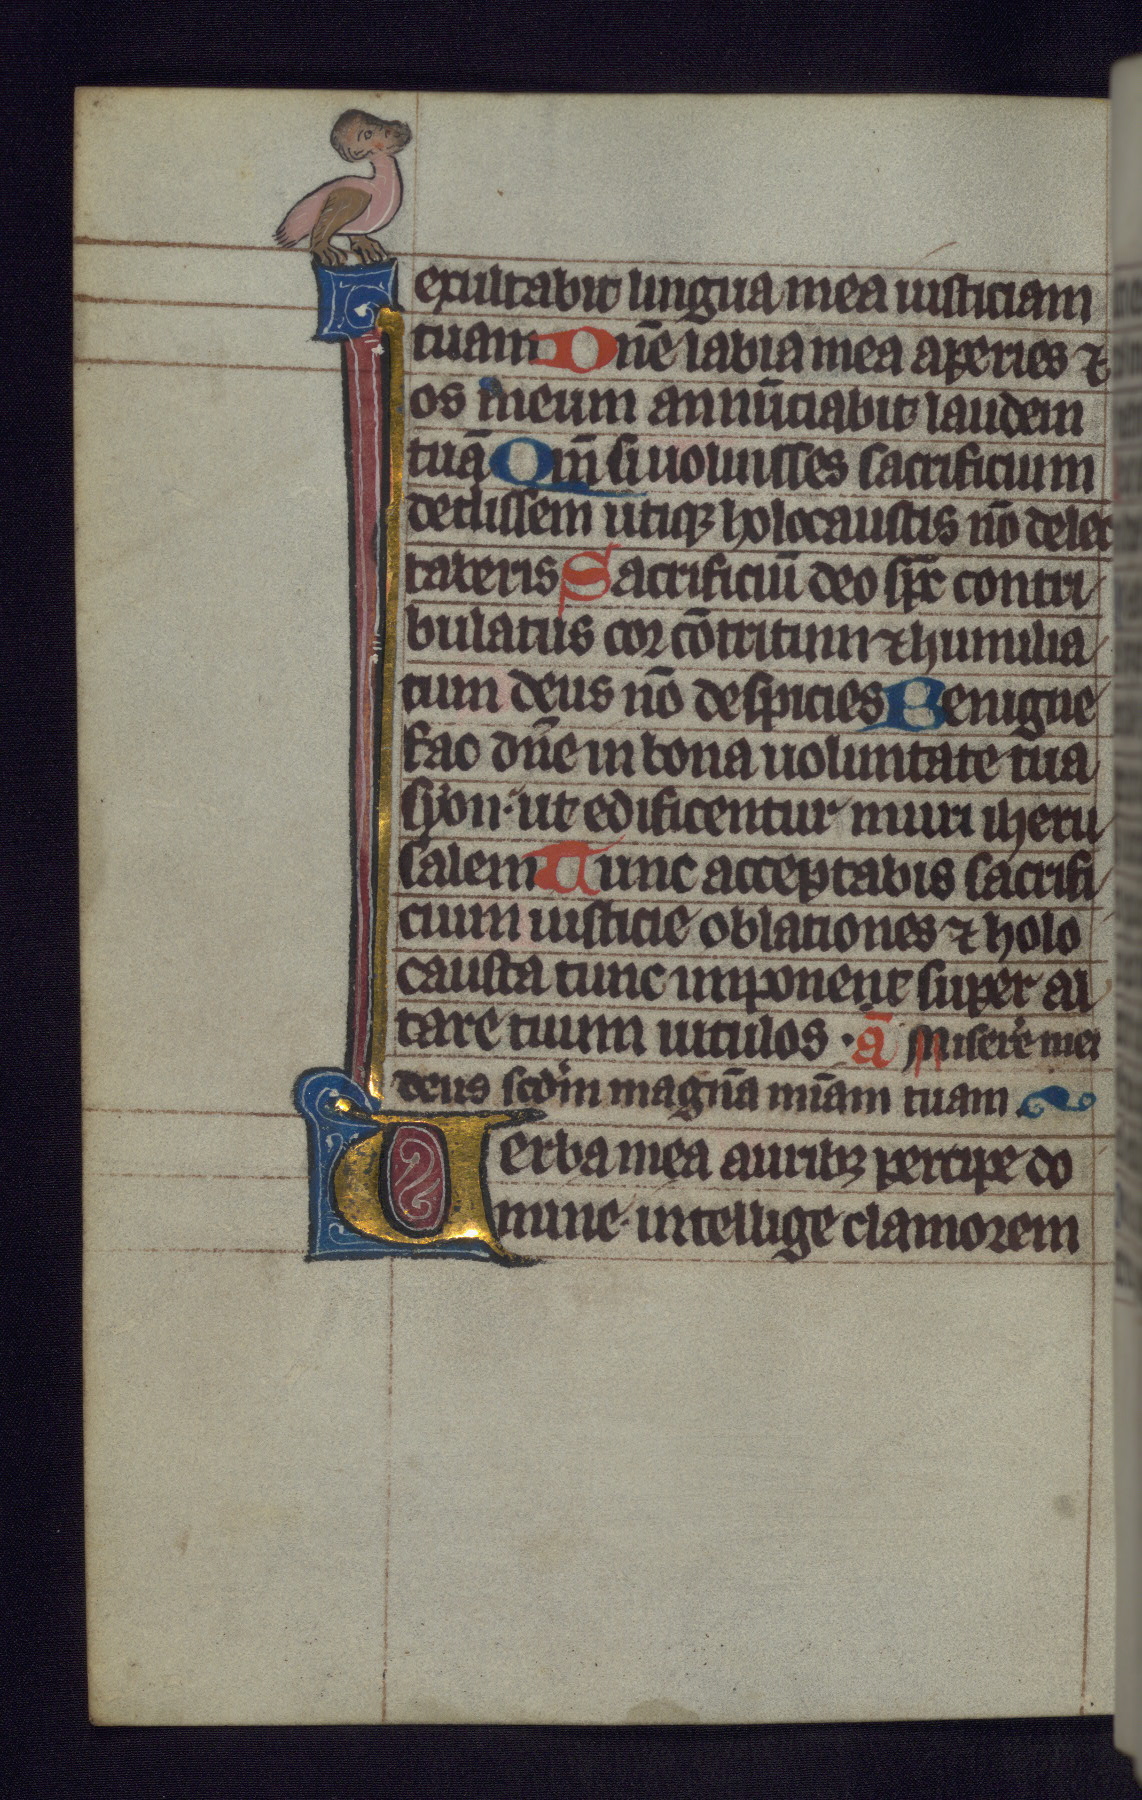 exultabit lingua mea iusticiam
tuam Dn̄e labia mea aperies ⁊
os meum annūciabit laudem
tuā Qm̄ si uoluisses sacrificium
dedissem utiqꝫ holocaustis nō delec
tateris Sacrificiū deo sp̄c contri
bulatus cor cōtritum ⁊ humilia
tum deus nō despicies Benigne
fac dn̄e in bona uoluntate tua
syon ut edificentur muri iheru
salem Tunc acceptabis sacrifi
cium iusticie oblationes ⁊ holo
causta tunc imponent super al
tare tuum uitulos · ā Miserere mei
deus scd̄m magnā mīam tuam
Uerba mea auribꝫ percipe do
mine intellige clamorem